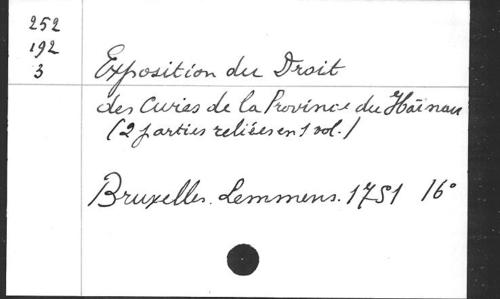 252
192
3
Exposition du Droit
des Curés de la Province du Hainau
(2 parties reliées en 1 vol.)
Bruxelles. Lemmens. 1751 16°